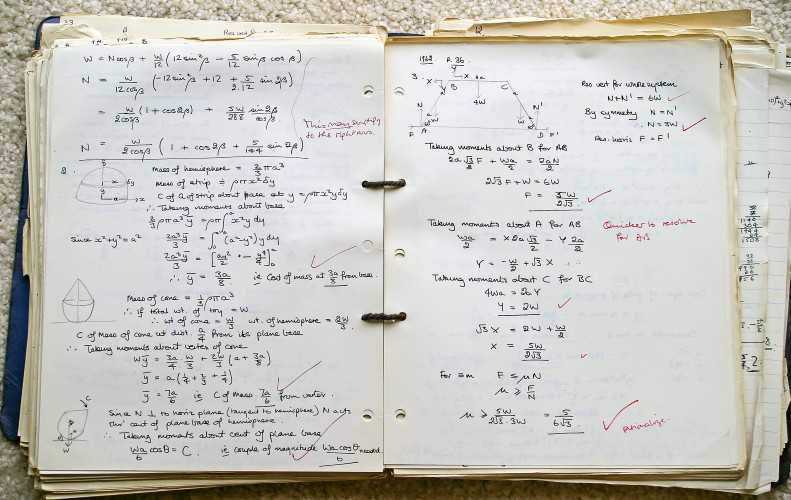 33
W = N cosβ + W/12 (12 sin²β - 5/12 sinβ cosβ)
N = W/12cosβ (-12 sin²β + 12 + 5/2.12 sin 2β)
= W/2cosβ (1 + cos2β) + 5W/288 sin2β/cosβ
This may simplify
to the right ans.
N = W/2cosβ (1 + cos2β + 5/144 sin 2β)
2.
Mass of hemisphere = 2/3 πa³
Mass of strip = ρπx²δy
C of G of strip about base at y = ρπx²yδy
∴ Taking moments about base
2/3 ρπa³ȳ = ρπ∫x²y dy
Since x²+y² = a²
2a³ȳ/3 = ∫(a²-y²)y dy
2a³ȳ/3 = [ay²/2 - y⁴/4]
∴ ȳ = 3a/8 ie Cent of mass at 3a/8 from base.
Mass of cone = 1/3 ρπa³
∴ if total wt. of toy = W
∴ wt of cone = W/3 wt. of hemisphere = 2W/3
C of Mass of cone wt dist. a/4 from its plane base
∴ Taking moments about vertex of cone
Wȳ = 3a/4 W/3 + 2W/3 (a + 3a/8)
ȳ = a(1/4 + 2/3 + 1/4)
ȳ = 7a/6 ie C of mass 7a/6 from vertex.
C
W
Since N ⊥ to horiz plane (tangent to hemisphere) N acts
thro' cent of plane base of hemisphere.
∴ Taking moments about cent of plane base
Wa/6 cosθ = C. ie couple of magnitude Wa cosθ/6 needed
1968 P. 36
3.
X Y X B C
4W
N N'
W W
F A D F'
Res vert for whole system
N + N' = 6W
By symmetry N = N'
∴ N = 3W
Res. horiz F = F'
Taking moments about B for AB
2a√3/2 F + Wa/2 = 2aN/2
2√3 F + W = 6W
F = 5W/2√3
Taking moments about A for AB
Wa/2 = X 2a√3/2 - Y 2a/2
Quicker to resolve
for AB
Y = -W/2 + √3 X
Taking moments about C for BC
4Wa = 2aY
Y = 2W
√3 X = 2W + W/2
X = 5W/2√3
For eqm F ≤ μN
μ ≥ F/N
μ ≥ 5W/2√3·3W = 5/6√3
rationalize